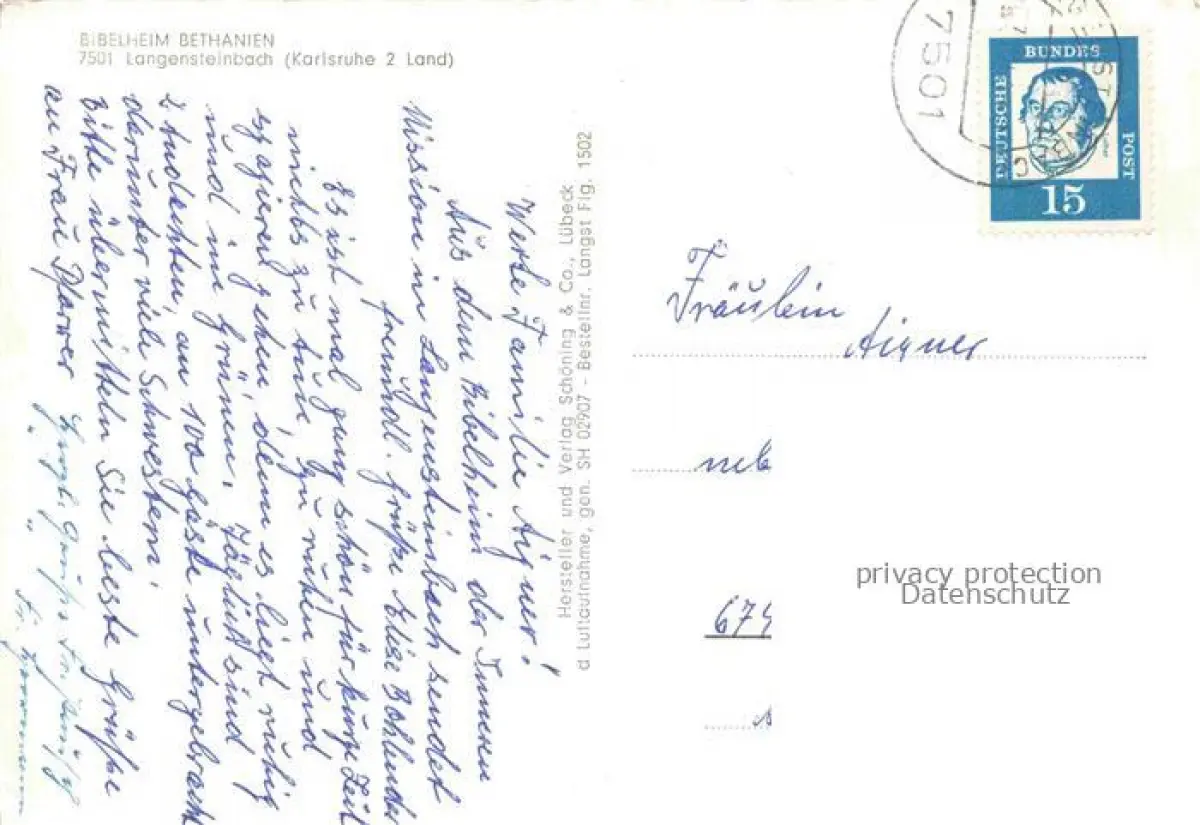 BIBELHEIM BETHANIEN
7501 Langensteinbach (Karlsruhe 2 Land)
Werte Familie Aigner!
Aus dem Bibelheim der Inneren
Mission in Langensteinbach sendet
freundl. Grüße Elise Bohlender
Es ist mal ganz schön für kurze Zeit
nichts zu tun, zu ruhen und
spazieren gehen, denn es liegt ruhig
und im Grünen. Täglich sind
2 Andachten, an 100 Gäste untergebracht
darunter viele Schwestern.
Bitte übermitteln Sie beste Grüße
an Frau Pfarrer
" " Fr.
Hersteller und Verlag Schöning & Co., Lübeck
d Luftaufnahme, gen. SH 02907 - Bestellnr. Langst Flg. 1502
7501
DEUTSCHE
BUNDES
POST
15
Fräulein
Aigner
neb
675
privacy protection
Datenschutz